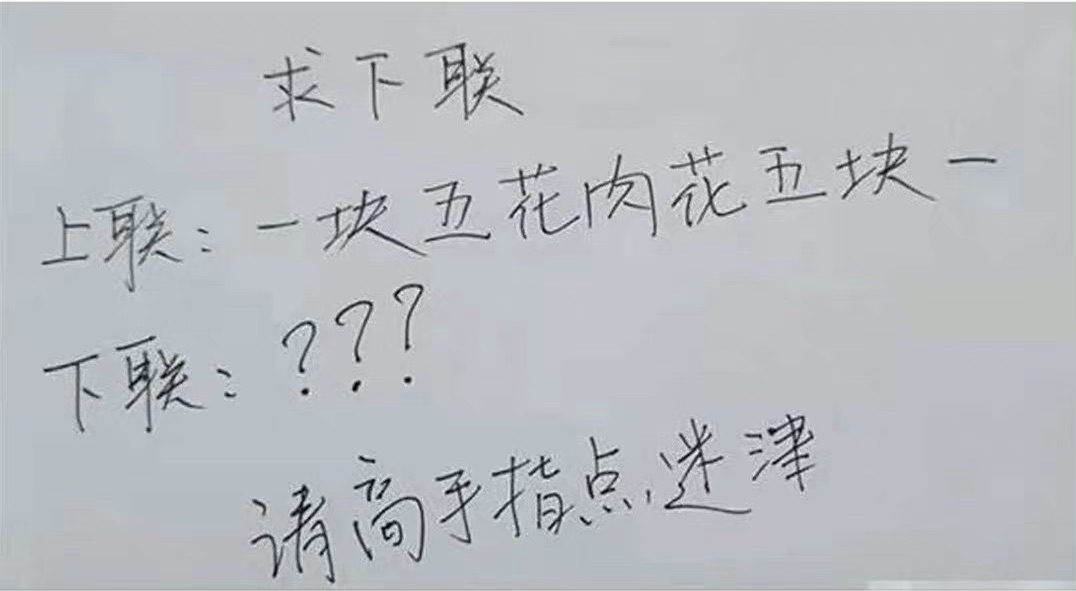 求下联
上联：一块五花肉花五块一
下联：???
请高手指点迷津